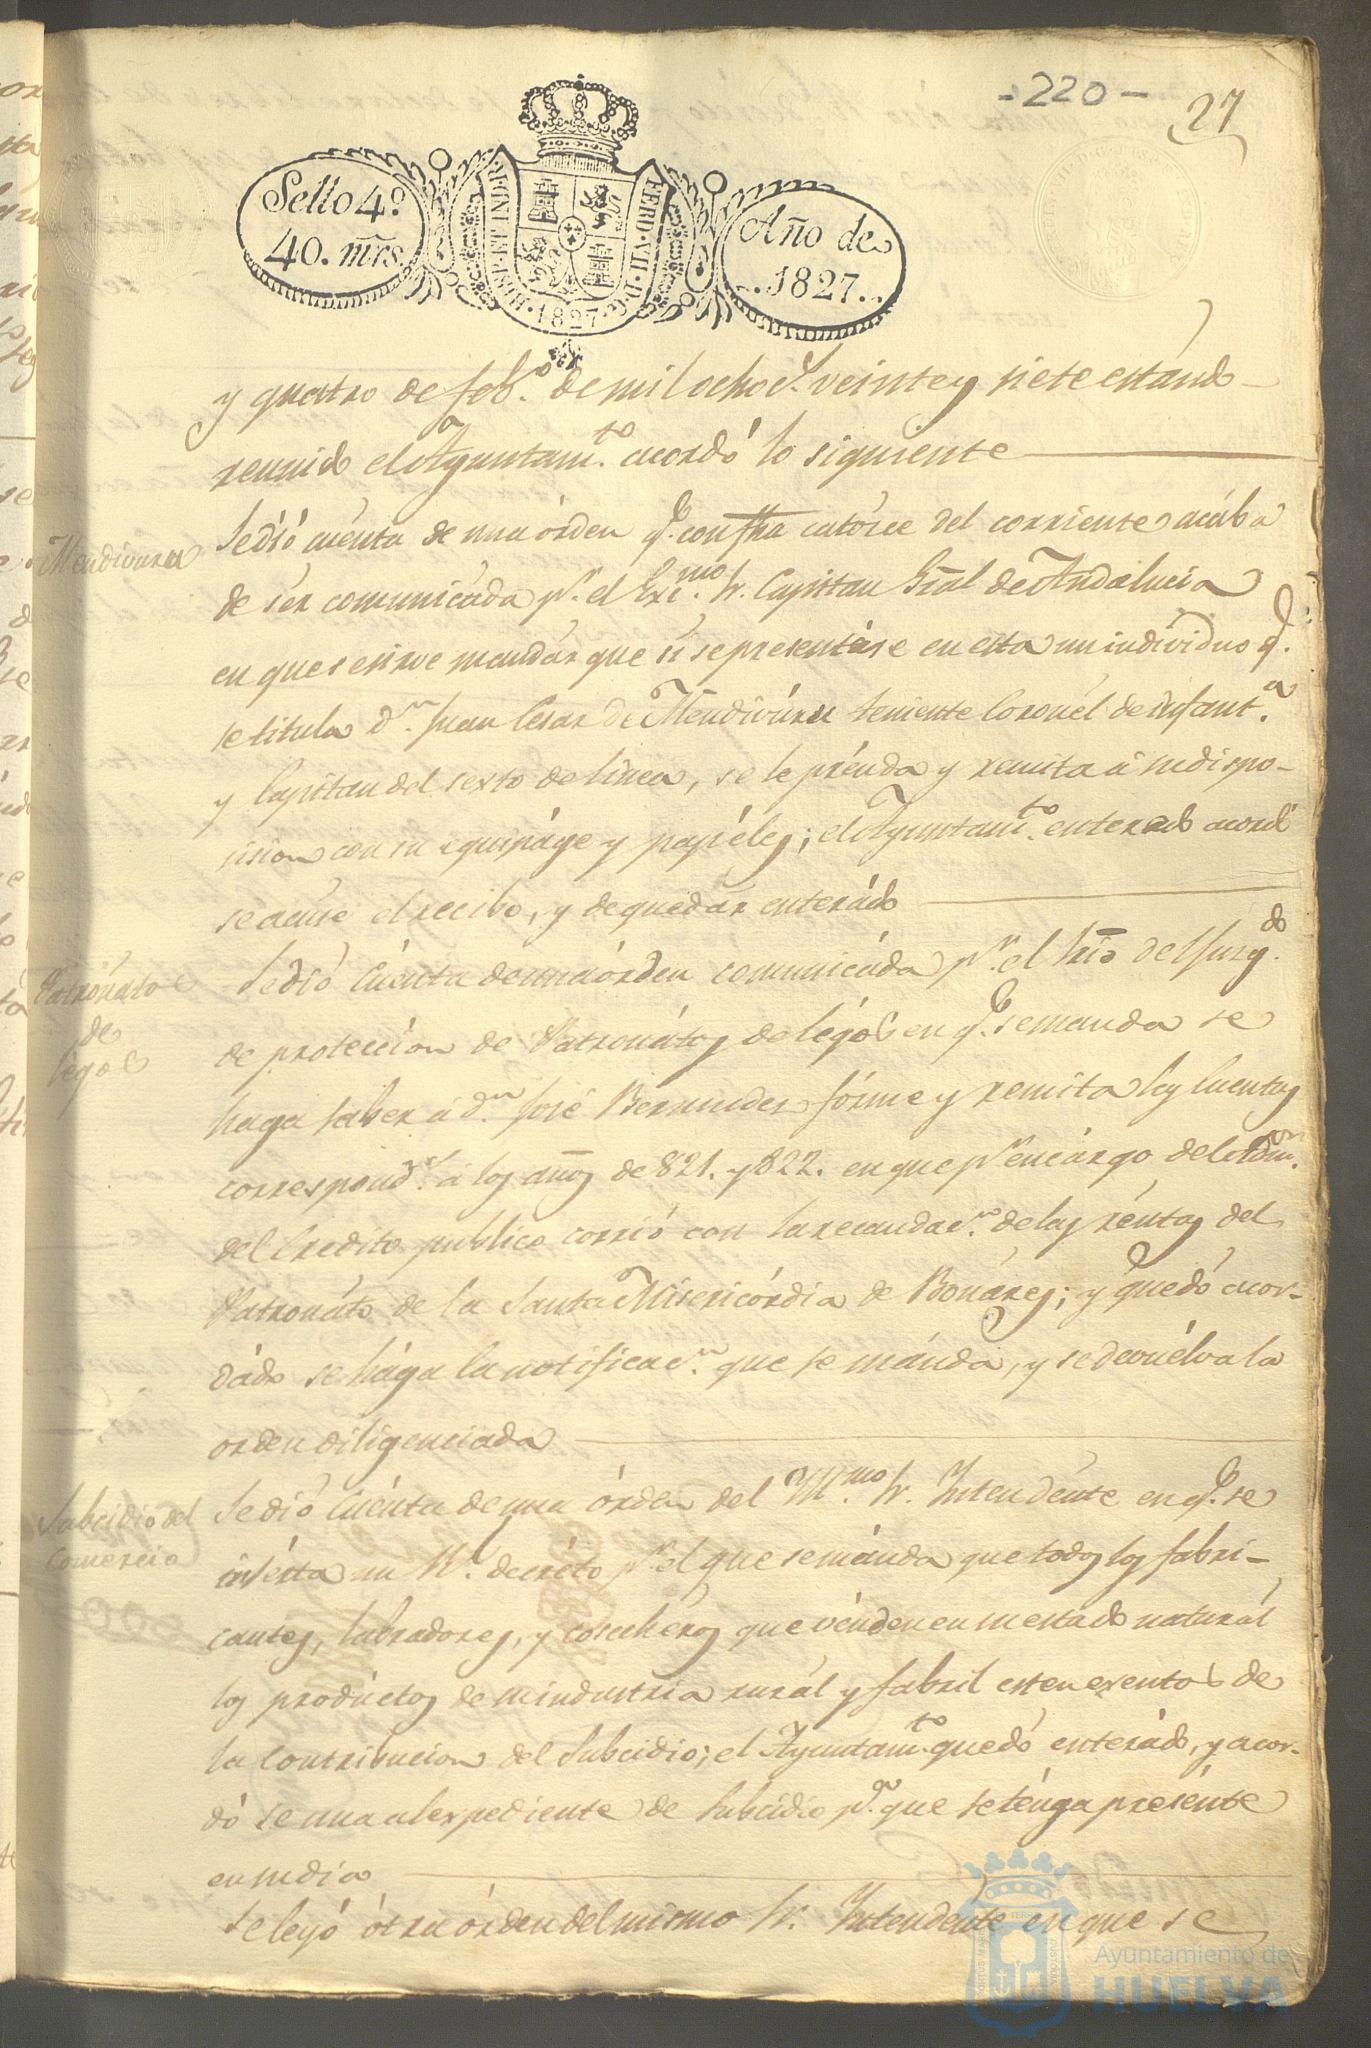 -220-
27
Sello 4º.
40. mrs.
HISP. ET IND. R.
FERD. VII. D. G.
1827
Año de
1827.
y quatro de feb.º de mil ochoc.s veinte y siete estando
reunido el Ayuntam.to acordó lo siguiente
Mendivuru
Se dió cuénta de una órden q.e con fha catórce del corriente acába
de sér comunicáda p.r el Exc.mo Sr. Capitan Gral de Andalucia
en que se sirve mandár que si se presentáse en esta un individuo q.e
se titula d.n Juan Cesar de Mendivúru teniente Coronél de infant.a
y Capitan del sexto de linea, se le prénda y remita á su dispo-
sision con su equipáge y papéles; el Ayuntam.to enterado acordó
se acuse el recibo, y de quedár enterádo
Patronáto
de
legos
Se dió Cuénta de una órden comunicáda p.r el Srio del Juzg.do
de protección de Patronátos de légos en q.e se manda se
haga saber á d.n José Bermudes fórme y remita las Cuentas
correspond.s á los años de 821. y 822. en que p.r encárgo del Adm.or
del Credito publico corrió con la recaudac.n de las réntas del
Patronáto de la Santa Misericórdia de Bonáres; y quedó acor-
dádo se hága la notificac.n que se mánda, y se devuélva la
orden diligenciada
Subcidio del
Comercio
Se dió Cuénta de una órden del M. Sr. Intendénte en q.e se
insérta un Rl. decréto p.r el que se mánda que todos los fabri-
cantes, labradores, y cosechéros que vénden en su estado naturál
los prodúctos de su industria rurál y fabril esten esentos de
la Contribucion del Subcidio; el Ayuntam.to quedó enterádo, y acor-
dó se una al expediente de Subcidio p.a que se ténga presénte
en su dia
Se leyó ótra órden del mismo Sr. Intendente en que se
Ayuntamiento de
HUELVA